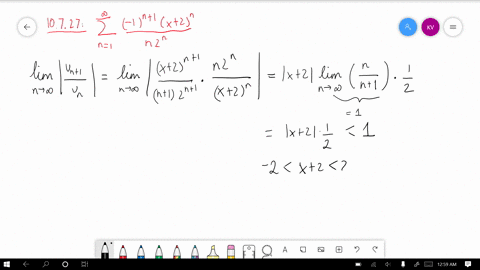 10.7.27: ∞ ∑ n=1 (-1)^{n+1} (x+2)^n / n 2^n
lim n→∞ |u_{n+1} / u_n| = lim n→∞ |(x+2)^{n+1} / (n+1) 2^{n+1} · n 2^n / (x+2)^n| = |x+2| lim n→∞ (n / n+1) · 1/2
= 1
= |x+2| · 1/2 < 1
-2 < x+2 < 2
KV
12:59 AM